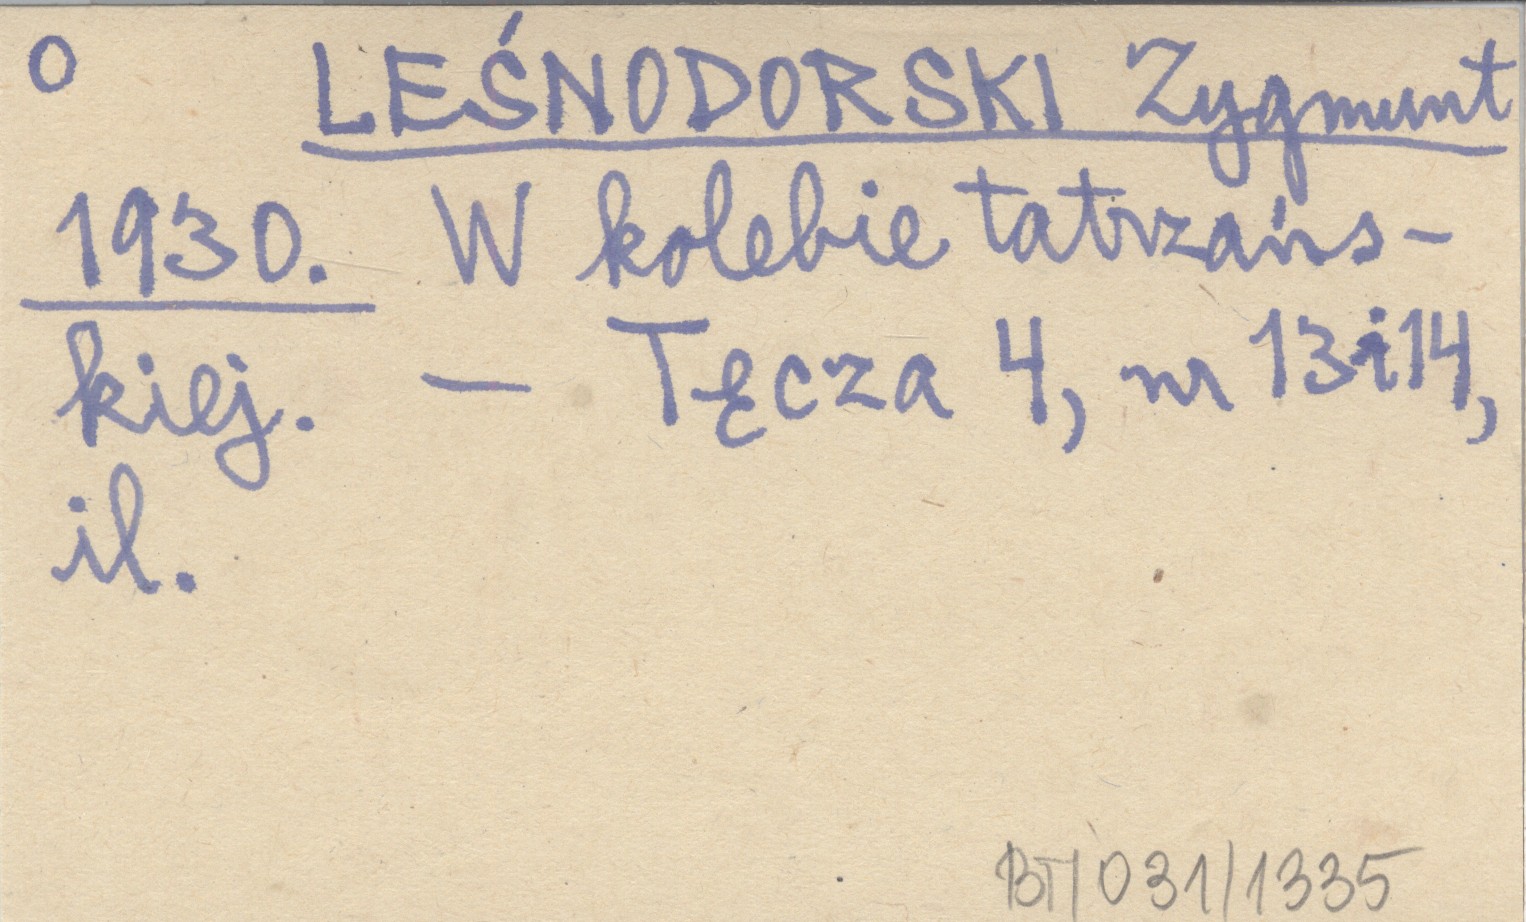 O LEŚNODORSKI Zygmunt
1930. W kolebie tatrzańs-
kiej. — Tęcza 4, nr 13i14,
il.
BT/031/1335